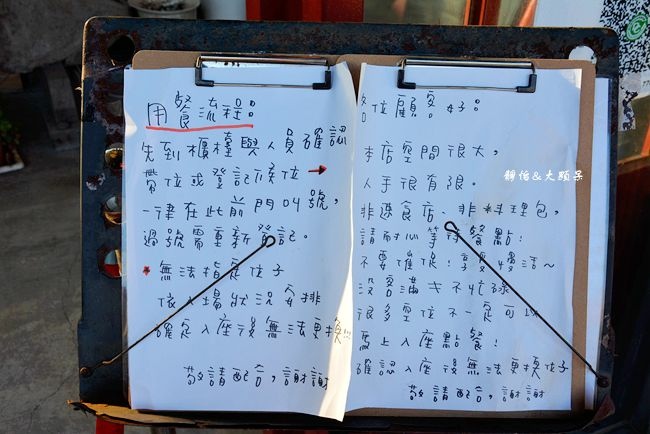 用餐流程:
先到櫃檯與人員確認
帶位或登記候位→
一律在此前門叫號,
過號需重新登記。
*無法指定位子
依入場狀況安排
確定入座後無法更換!!!
敬請配合,謝謝
各位顧客好:
本店空間很大,
人手很有限。
非速食店、非料理包,
請耐心等待餐點!
不要催促!享受慢活~
沒客滿≠不忙碌
很多空位不一定可以
馬上入座點餐!
確認入座後無法更換位子
敬請配合,謝謝
靜怡&大顆呆